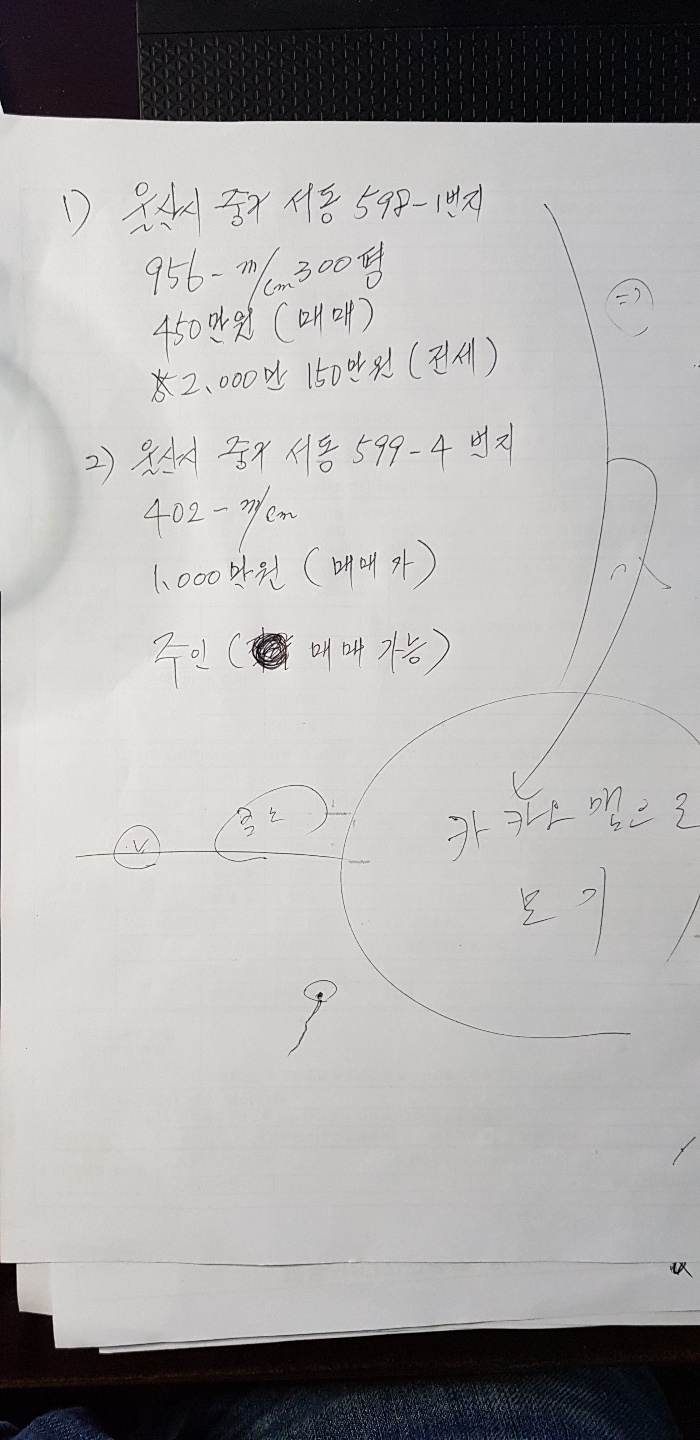 1) 울산시 중구 서동 598-1번지
956-m/cm 300평
450만원 (매매)
2,000만 150만원 (전세)
2) 울산시 중구 서동 599-4 번지
402-m/cm
1,000만원 (매매가)
주인 ( 매매가능)
카카오맵으로
보기